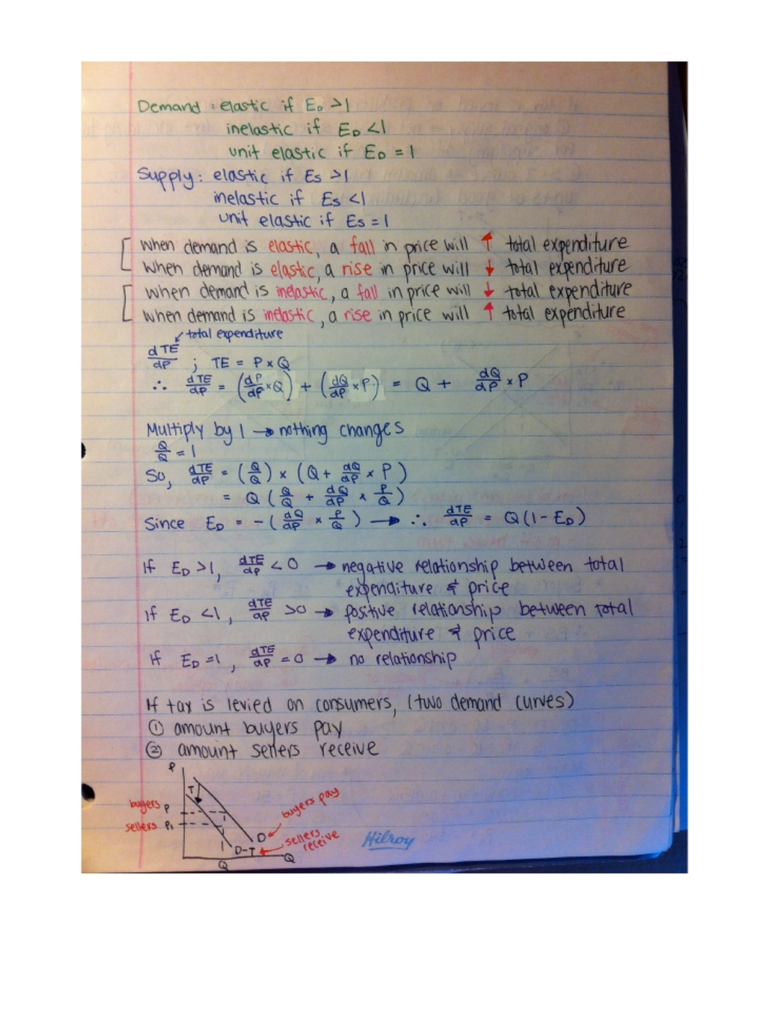 Demand : elastic if E_D >1
inelastic if E_D <1
unit elastic if E_D = 1
Supply : elastic if Es >1
inelastic if Es <1
unit elastic if Es = 1
when demand is elastic, a fall in price will ↑ total expenditure
when demand is elastic, a rise in price will ↓ total expenditure
when demand is inelastic, a fall in price will ↓ total expenditure
when demand is inelastic, a rise in price will ↑ total expenditure
total expenditure
dTE/dP ; TE = P × Q
∴ dTE/dP = (dP/dP × Q) + (dQ/dP × P) = Q + dQ/dP × P
Multiply by 1 → nothing changes
Q/Q = 1
So, dTE/dP = (Q/Q) × (Q + dQ/dP × P)
= Q (Q/Q + dQ/dP × P/Q)
Since E_D = -(dQ/dP × P/Q) → ∴ dTE/dP = Q(1 - E_D)
If E_D >1, dTE/dP < 0 → negative relationship between total
expenditure & price
If E_D <1, dTE/dP >0 → positive relationship between total
expenditure & price
If E_D =1, dTE/dP = 0 → no relationship
If tax is levied on consumers, (two demand curves)
① amount buyers pay
② amount sellers receive
P
T
buyers P
sellers P₁
buyers pay
D
sellers
receive
D-T
Q
Q
Hilroy